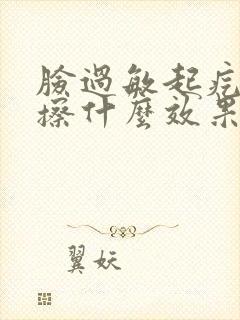 臉過敏起疙
擦什麼效果
翼妖